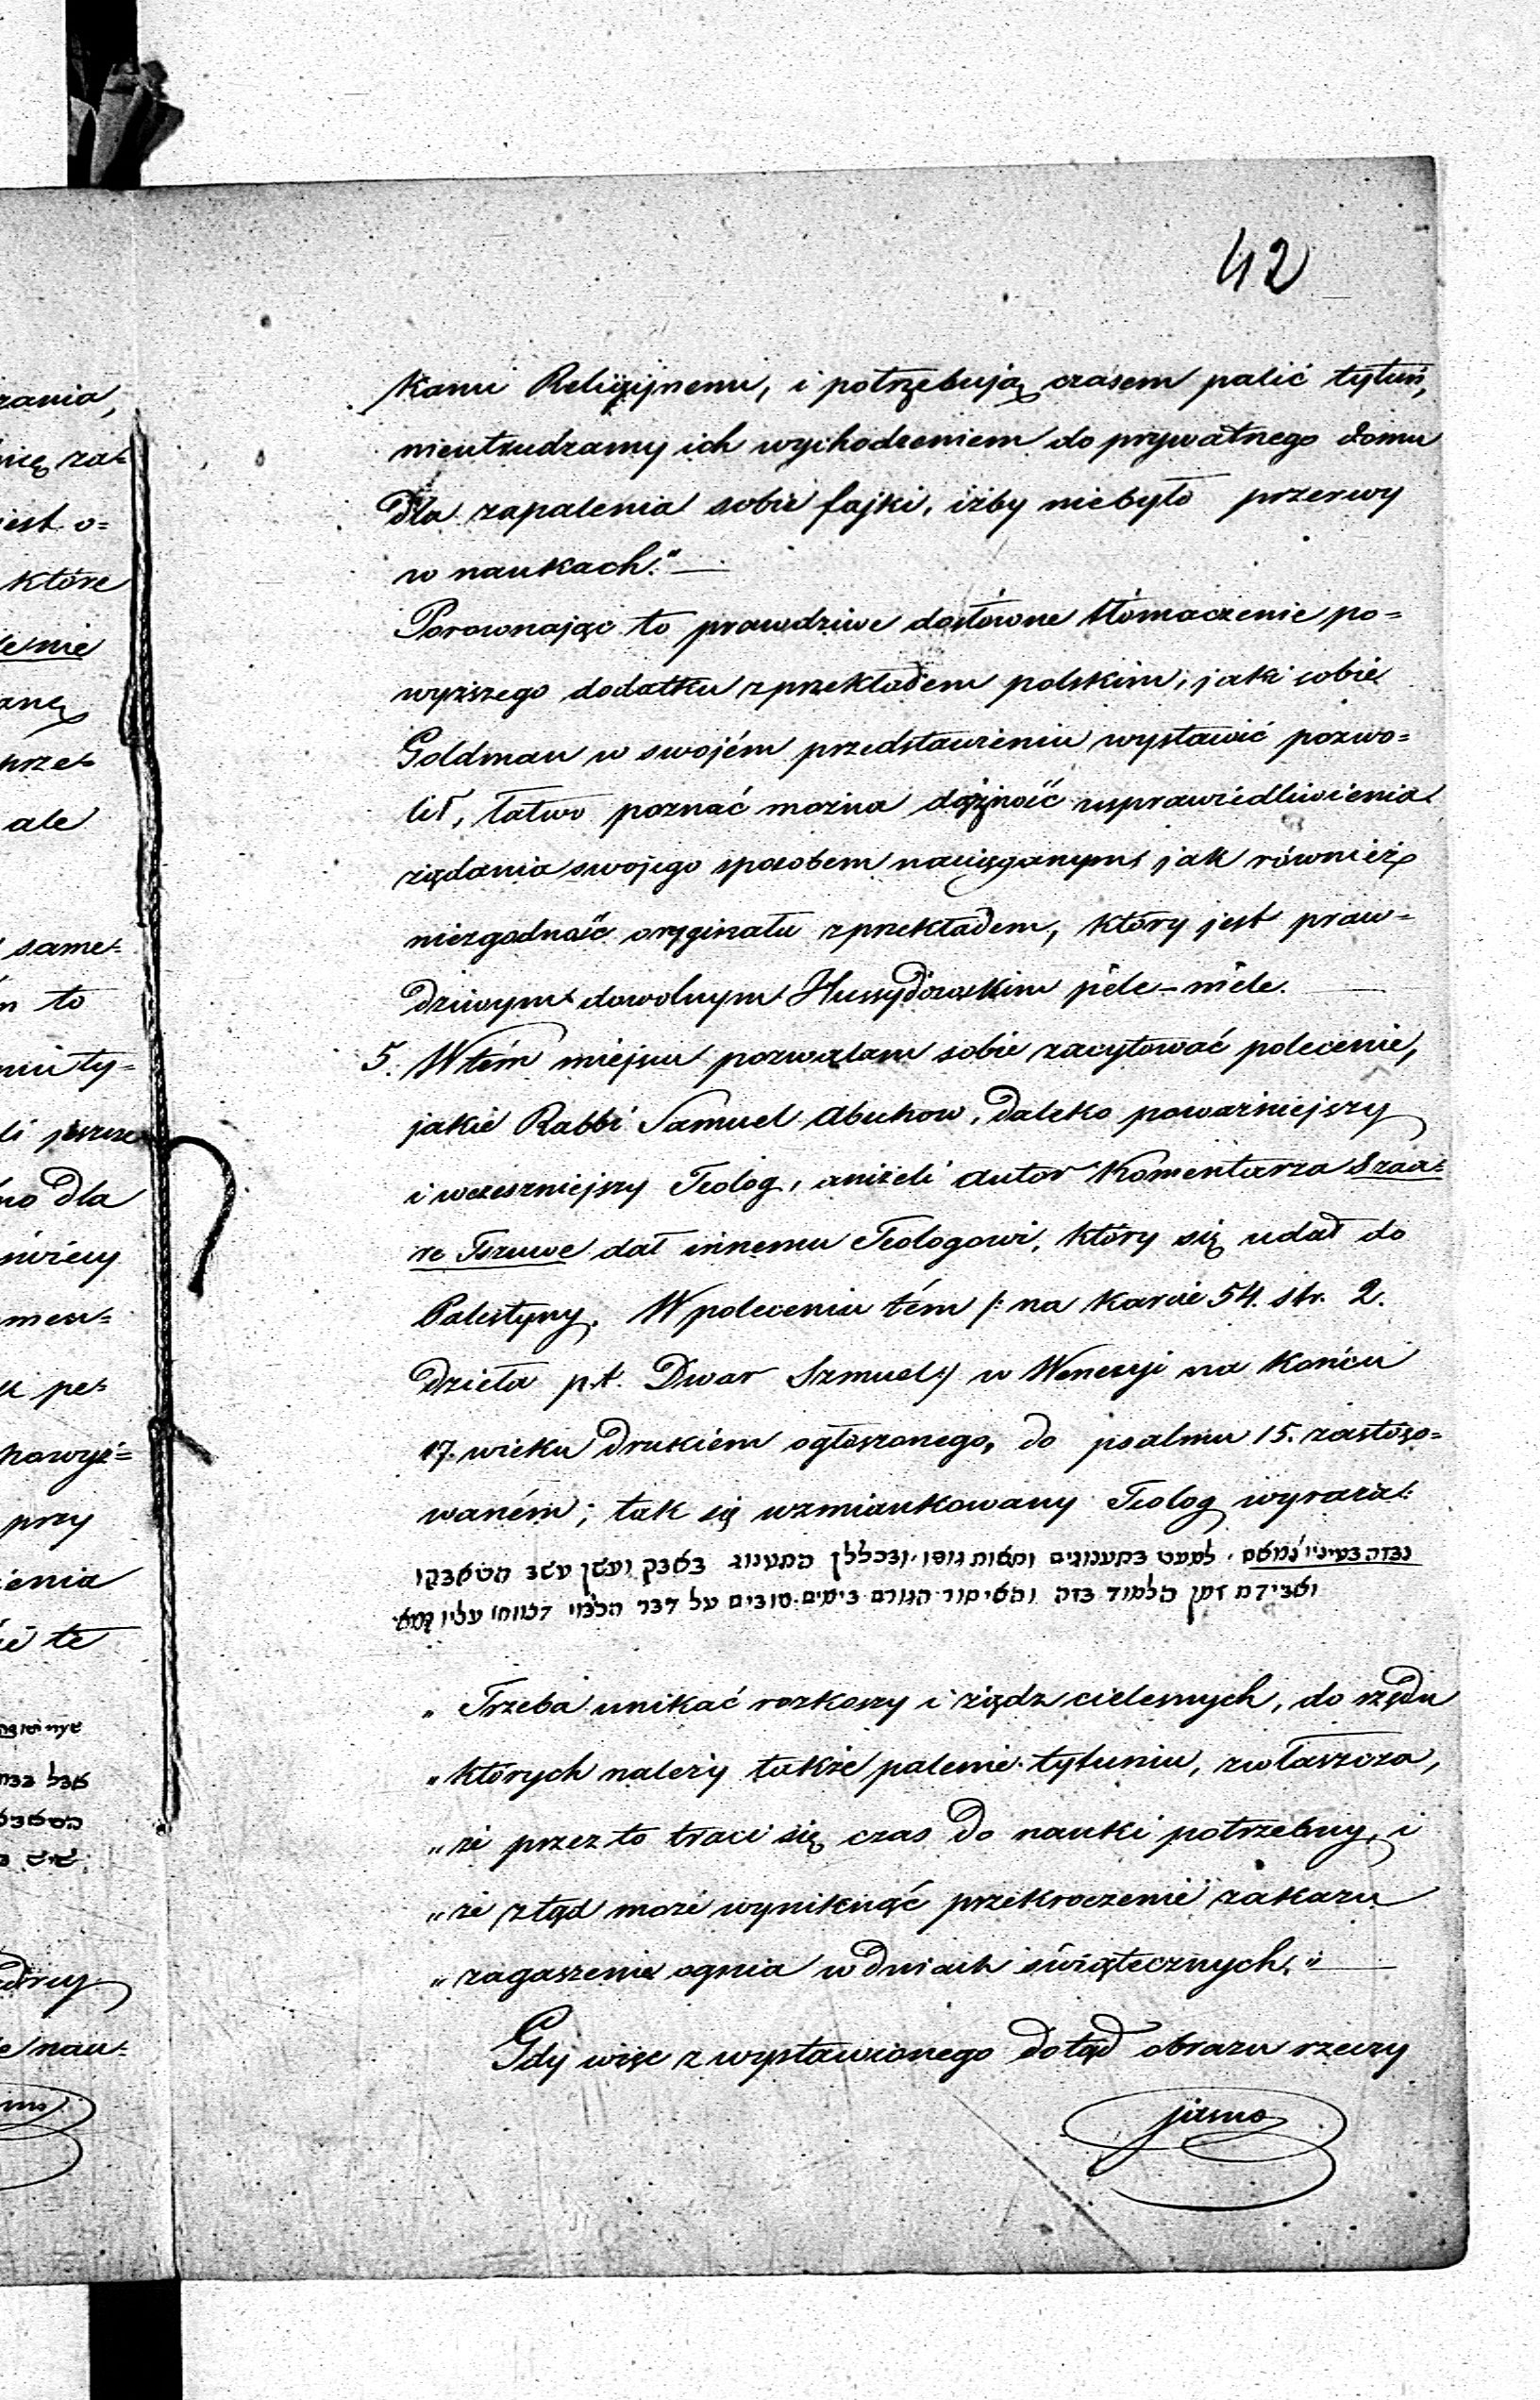 42
kami Religijnemi, i potrzebują czasem palić tytuń,
nieutrudzamy ich wychodzeniem do prywatnego domu
dla zapalenia sobie fajki, iżby niebyło przerwy
w naukach."—
Porownając to prawdziwe dosłowne tłómaczenie po=
wyższego dodatku z przekładem polskim, jaki sobie
Goldman w swojém przedstawieniu wystawić pozwo=
lił, łatwo poznać można dążność usprawiedliwienia
żądania swojego sposobem naciąganym, jak również
niezgodność oryginału z przekładem, który jest praw=
dziwym dowolnym Hussydowskim pêle-mêle.—
5. W tém miejscu pozwalam sobie zacytować polecenie,
jakie Rabbi Samuel Abuhow, daleko poważniejszy
i wcześniejszy Teolog, aniżeli autor Komentarza Szaa=
re Tszuwe dał innemu Teologowi, który się udał do
Palestyny. W poleceniu tém /: na karcie 54. str. 2.
dzieła p.t. Dwar Szmuel:/ w Wenecyi na końcu
17. wieku drukiem ogłoszonego, do psalmu 15. zastoso=
waném; tak się wzmiankowany Teolog wyraża:
נבזה בעיניו נמאס, למעט בתענוגים ותאות גופו, ובכללן התענוג באבק ועשן עשב הטאבקו
ואבידת זמן הלמוד בזה והאיסור הגורם בימים טובים על דבר הכבוי
„Trzeba unikać rozkoszy i żądz cielesnych, do rzędu
„których należy także palenie tytuniu, zwłaszcza,
„że przez to traci się czas do nauki potrzebny, i
„że ztąd może wyniknąć przekroczenie zakazu
„zagaszenia ognia w dniach świątecznych."—
Gdy więc z wystawionego dotąd obrazu rzeczy
jasno
rania,
nię za=
jest o=
które
prze=
ale
same=
to
ty=
li jeszcze
dla
men=
pe=
przy
ienia
te
nau=